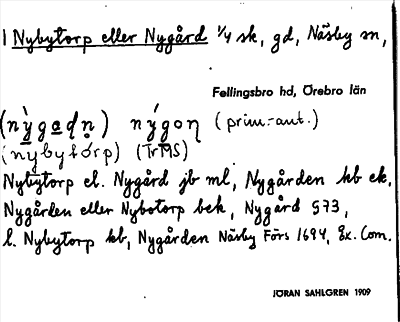 1 Nybytorp eller Nygård 1/4 sk, gd, Näsby sn,
Fellingsbro hd, Örebro län
(nỳgaḍṇ) nýgoƞ (prim.-ant.)
(nybytórp) (TrMS)
Nybytorp el. Nygård jb ml, Nygården kb ek,
Nygården eller Nybotorp bek, Nygård §73,
l. Nybytorp kb, Nygården Näsby Förs 1694, Ex. Com.
JÖRAN SAHLGREN 1909